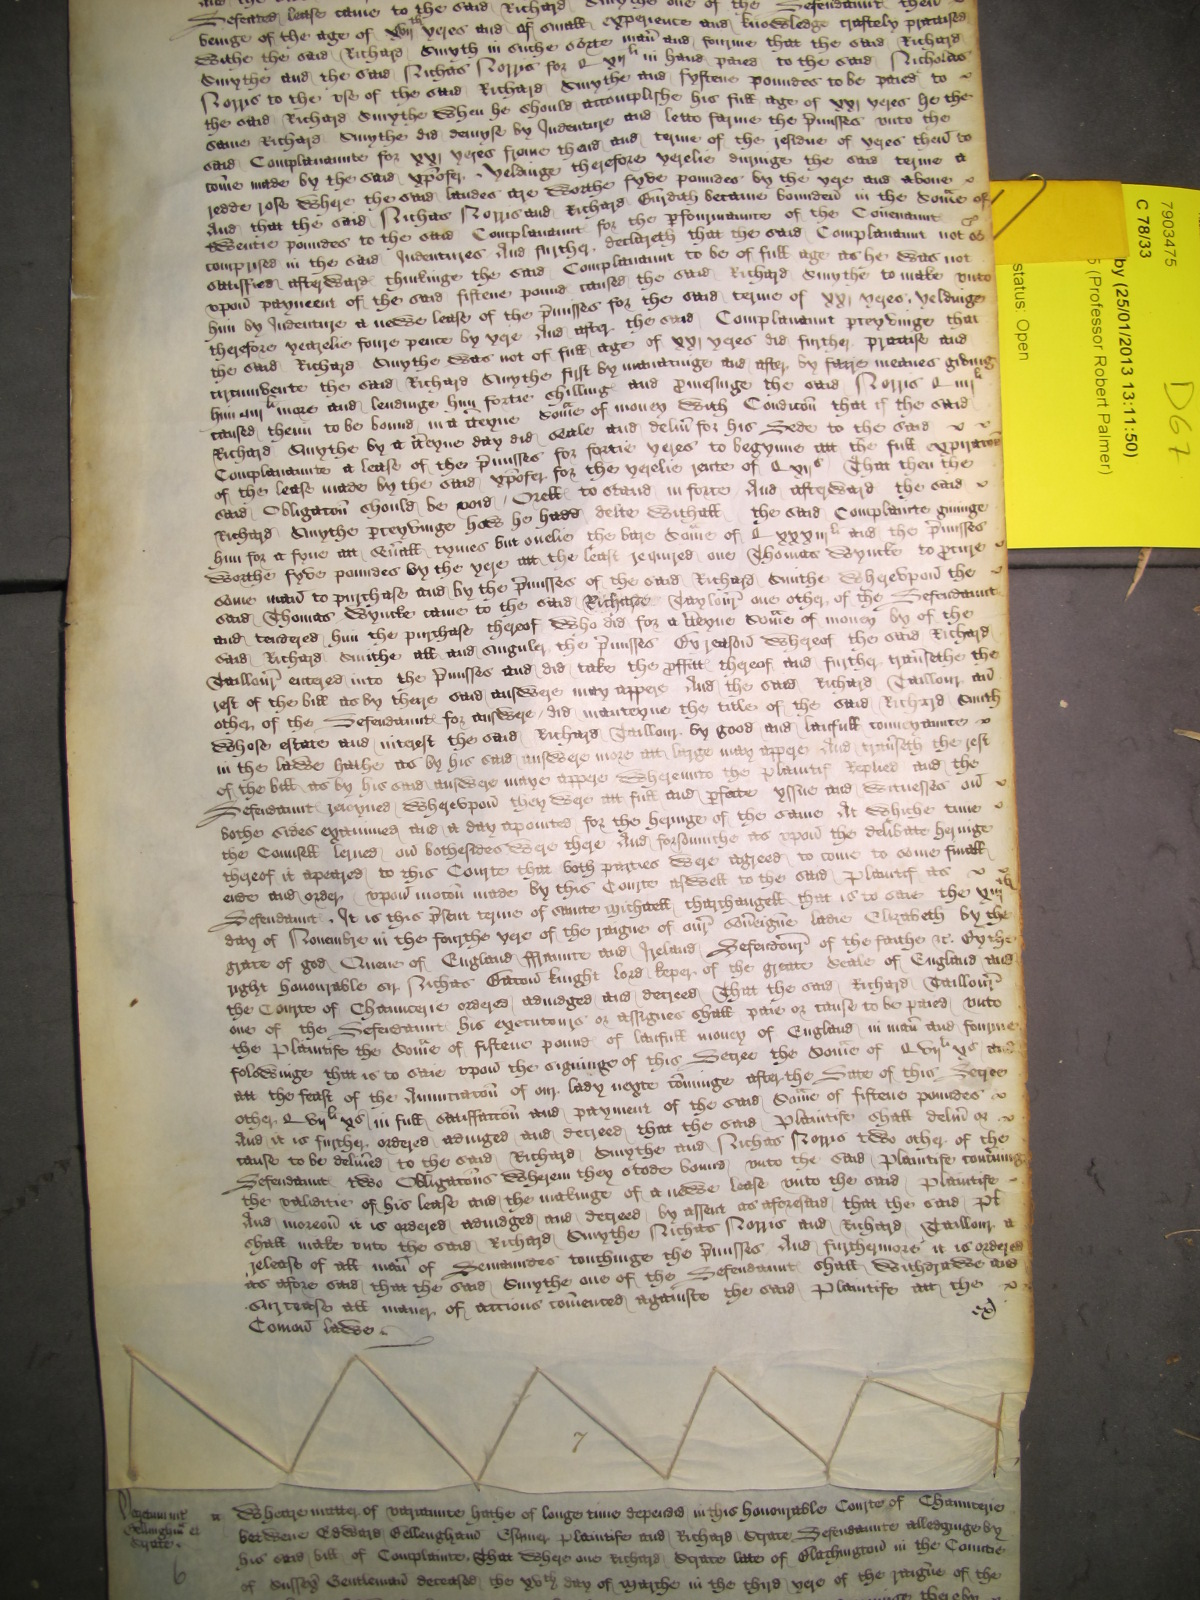 defeated lease came to the said Richard Smythe one of the Defendaunt then
beinge of the age of xvii^th yeres and of small experience and knowledge craftely practised
withe the said Richard Smyth in suche sorte man~ and fourme that the said Richard
Smythe and the said Nichas Norris for in hand paied to the said Nicholas
Norris to the use of the said Richard Smythe and fyftene poundes to be paied to
the said Richard Smythe when he should accomplishe his full age of xxi yeres he the
same Richard Smythe did demyse by Indenture and lette farme the p~misses unto the
said Complaynaunte for xxi yeres frome thend and terme of the residue of yeres then to
come made by the said xp~ofer yeldinge therefore yerelie duringe the said terme a
redde rose where the said landes are worthe fyve poundes by the yere and above
And that the said Nichas Norris and Richard became bounden in the Some of
twentie poundes to the said Complaynaunt for the p~fourmaunce of the Covenaunt
comprised in the said Indentures And further declareth that the said Complaynaunt not so
satisfied afterward thinkinge the said Complaynaunt to be of full age as he was not
upon payment of the said fiftene pound caused the said Richard Smythe to make unto
him by Indenture a newe lease of the p~misses for the said terme of xxi yeres, yeldinge
therefore yearelie foure pence by yere And after the said Complaynaunt p~ceyvinge that
the said Richard Smythe was not of full age of xxi yeres did further practise and
circumvente the said Richard Smythe first by manacinge and after by faire means giving
him iiii^li more and lendinge him fortie shilling and p~mesinge the said Norris
caused them to be bound in a c~teyne Some of money with Condicon that if the said
Richard Smythe by a c~teyne day did seale and deliu~ for his Dede to the said
Complaynaunte a lease of the p~misses for fortie yeres to begynne att the full expiracon
of the lease made by the said xp~ofer for the yerelie rente of That then the
said Obligacon should be void / Orells to stand in force And afterward the said
Richard Smythe p~ceyvinge how he hadd delte withall the said Complainte givinge
him for a fyne att seu~all tymes but onelie the bare Some of and the p~misses
worthe fyve poundes by the yere att the least required one Thomas Wyncke to p~cure
some man to purchase and by the p~misses of the said Richard Smithe Whereupon the
said Thomas Wyncke came to the said Richarde Taylour one other of the Defendaunt
and tendered him the purchase thereof who did for a c~teyne Some of money by of the
said Richard Smithe all and singuler the p~misses By reason whereof the said Richard
Taillour entered into the p~misses and did take the p~ffitt thereof and further trau~sethe the
rest of the bill as by there said answere may appere And the said Richard Taillour an
other of the Defendaunt for answere did manteyne the title of the said Richard Smith
whose estate and interest the said Richard Taillour by good and laufull conveyaunce
in the lawe hathe as by his said answere more att large may appere And trau~seth the rest
of the bill as by his said answere maye appere Whereunto the plaintif Replied and the
Defendaunt reioyned whereupon they were att full and p~fecte yssue and witnesses on
bothe sides examined and a day apointed for the heringe of the same At whiche time
the Counsell lerned on bothesides were there And forsomuche as upon the deliberate heringe
thereof it apeared to this Courte that both parties were agreed to come to some finall
ende and order upon mocon made by this Courte aswell to the said plaintif as
Defendaunt. It is this p~sent terme of sainte Michaell tharchangell that is to saie the
day of Novembre in the fourthe yere of the raigne of our sou~eigne ladie Elizabeth by the
grace of god Quene of England ffraunce and Ireland Defendour of the faithe &c. By the
right honourable sir Nichas Bacon knight lord keper of the greate Seale of England and
the Courte of Chauncerie ordered adiudged and decreed That the said Richard Taillour
one of the Defendaunt his executours or assignes shall paie or cause to be paied unto
the plaintife the Some of fiftene pound of laufull money of England in man~ and fourme
folowinge that is to saie upon the signinge of this Decree the Some of vii^li x^s and
att the feast of the Annunciacon of our lady nexte cominge after the Date of this Decree
other vii^li x^s in full satisfaccon and payment of the said Some of fiftene poundes
And it is further ordered adiudged and decreed that the said plaintife shall deliu~ or
cause to be deliu~ed to the said Richard Smythe and Nichas Norris two other of the
Defendaunt two Obligacons wherein they stode bound unto the said plaintife
the validitie of his lease and the makinge of a newe lease unto the said plaintife
And moreou~ it is ordered adiudged and decreed by assent as aforesaid that the said Pl
shall make unto the said Richard Smythe Nichas Norris and Richard Taillour a
release of all man~ of Demaundes touchinge the p~misses And furthermore it is ordered
as afore said that the said Smythe one of the Defendaunt shall withdrawe and
surcease all maner of accions comenced againste the said plaintife att the
Comon lawe.
ex~
7
Whereas matter of variaunce hathe of longe time depended in this honourable Courte of Chauncerie
betwene Edward Bellengham Esquier plaintife and Richard Scrase Defendaunte alledginge by
his said bill of Complainte. That where one Richard Scrase late of Blachington in the Countie
of Sussex Gentleman deceased the xv^th day of Marche in the third yere of the raigne of the
6
7903475
C 78/33
by (25/01/2013 13:11:50)
5 (Professor Robert Palmer)
status: Open
D67